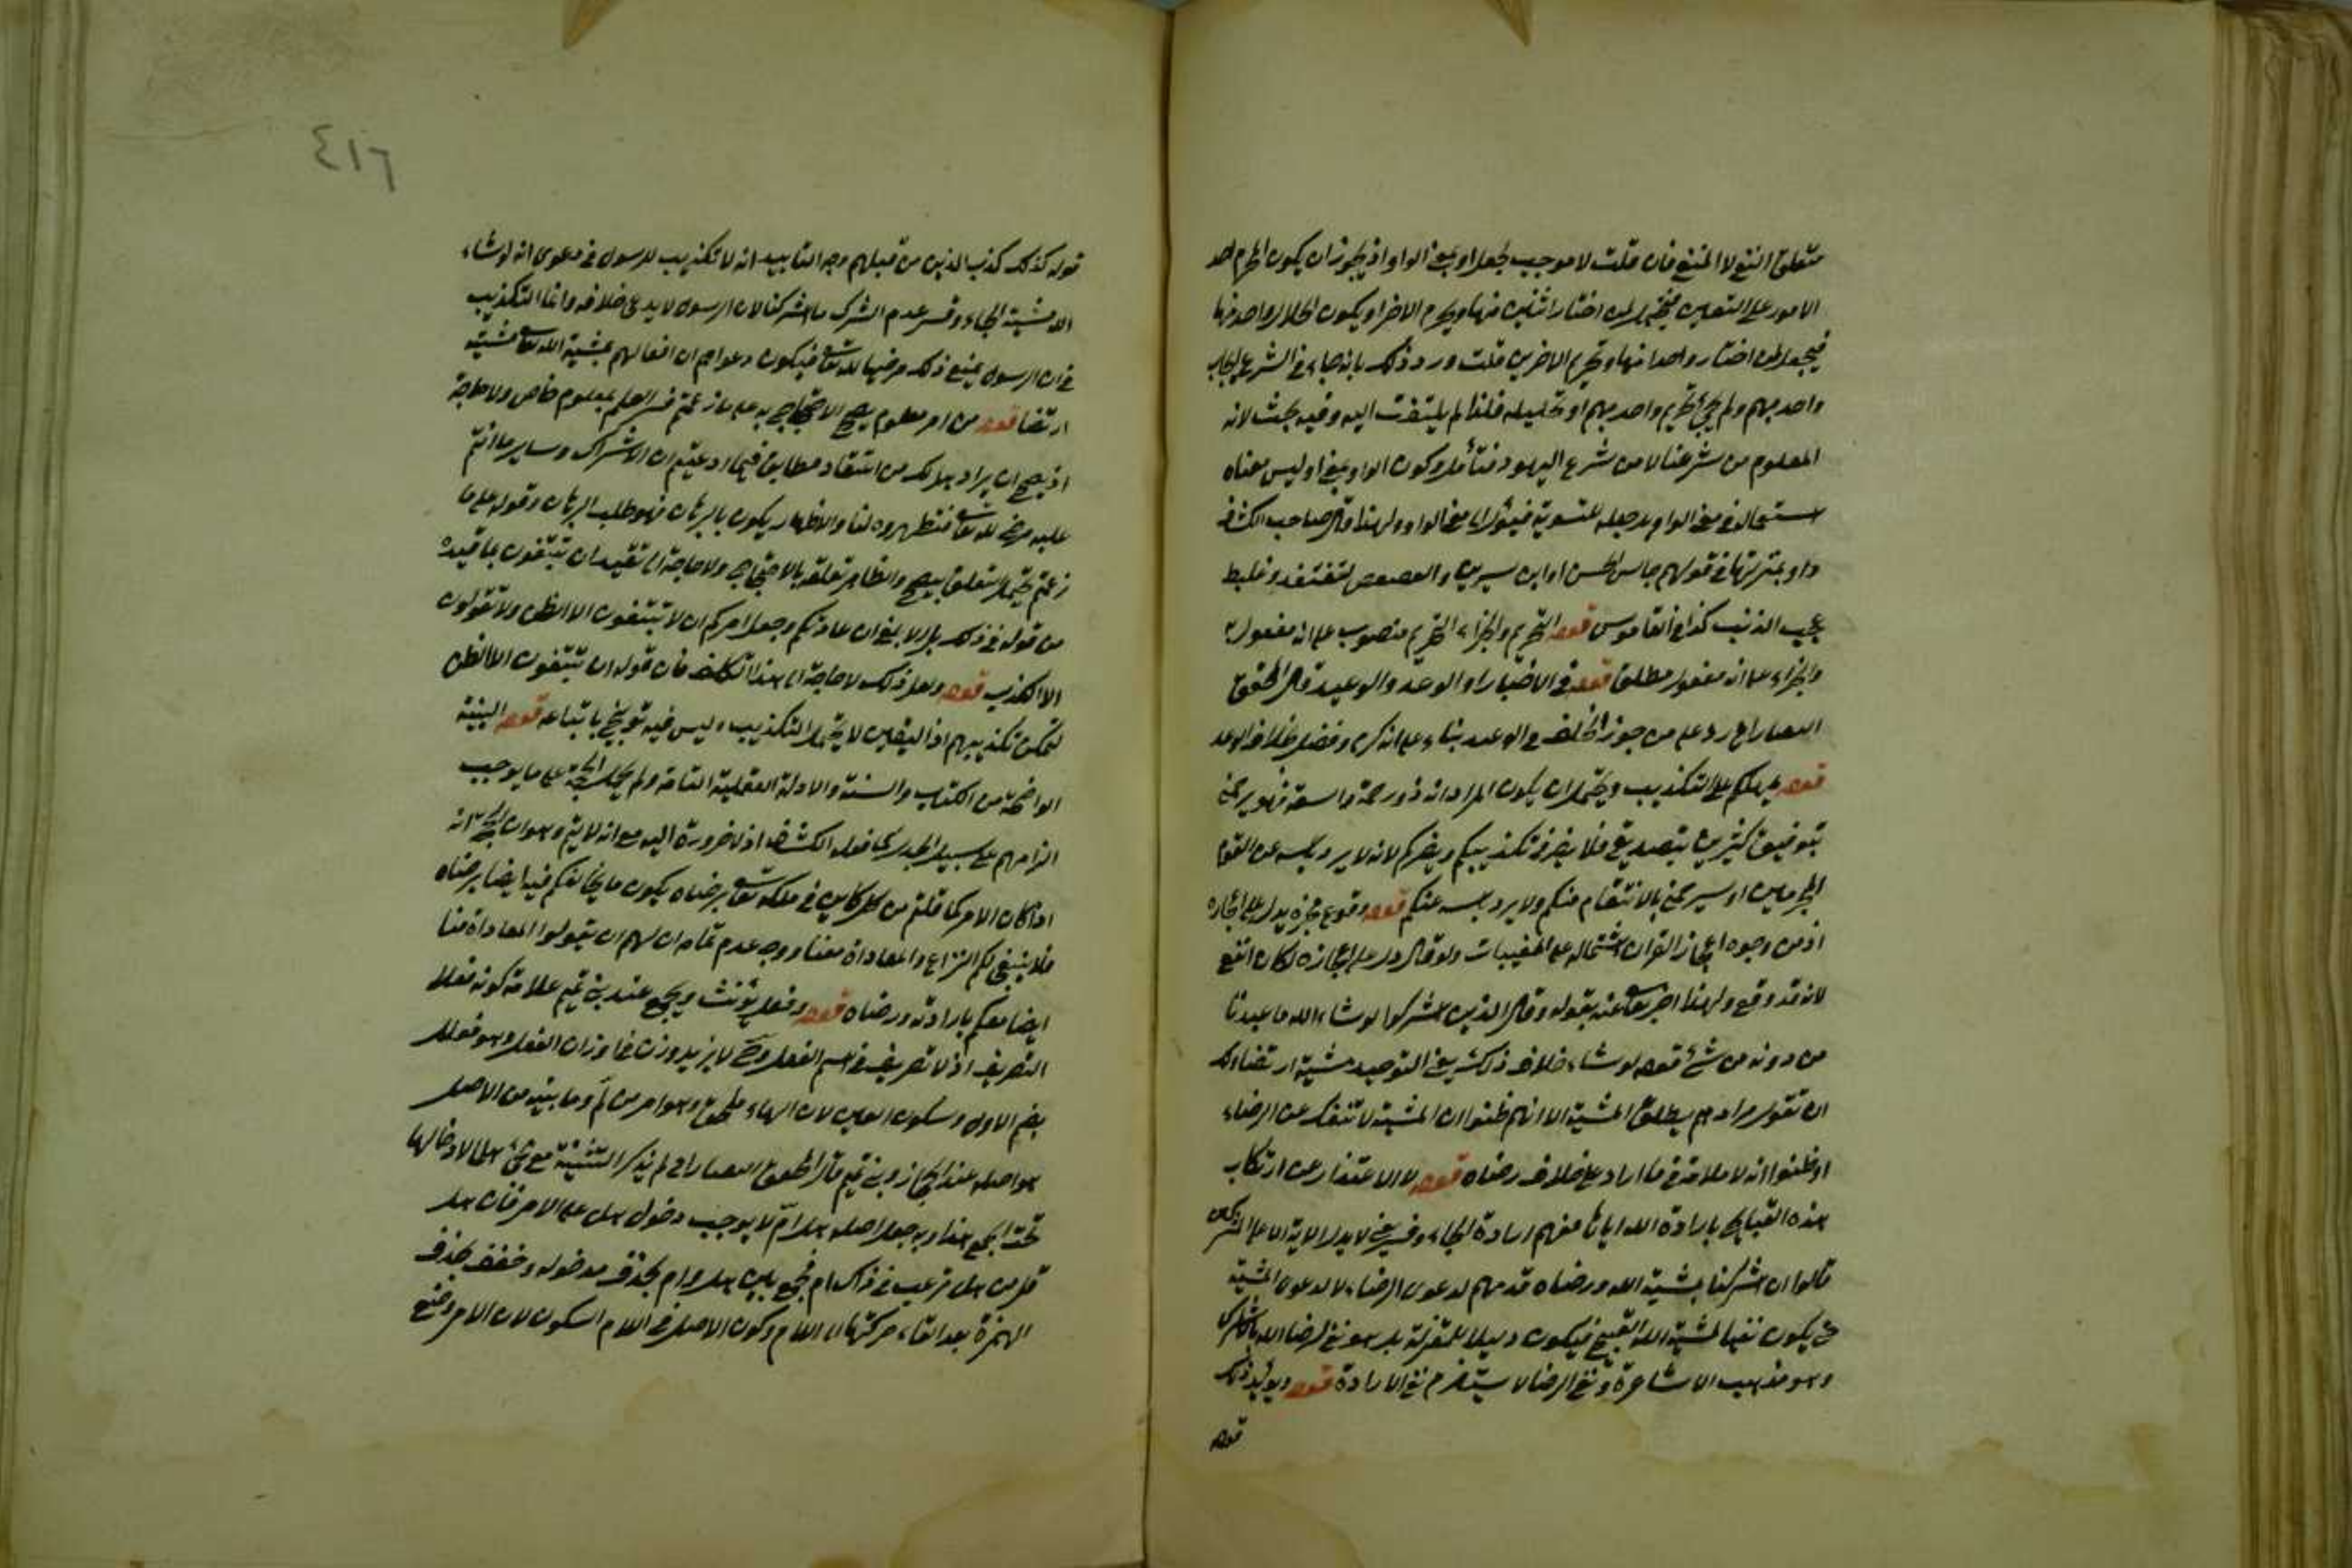 متعلق النفع لا المنفع فان قلت لا موجب لجعل او بمعنى الواو اذ يجوز ان يكون المحرم احد
الامور على التعيين فيخير اختار اثنين منها ويحرم الاخر او يكون الحلال واحد منها
فيجعل اختار واحدا منها وتحريم الاخرين قلت ورد ذلك بانه جاء في الشرع ايجاب
واحد مبهم ولم يجئ تحريم واحد مبهم او تحليله فلذا لم يلتفت اليه وفيه بحث لانه
المعلوم من شرعنا لا من شرع اليهود فتأمل وكون الواو بمعنى او ليس معناه
استعماله في معنى الواو بل جعله للتسوية فيؤل الى معنى الواو ولهذا قال صاحب الكشاف
او بمنزلتها في قولهم جالس الحسن او ابن سيرين والعصعص وغليظ
عجب الذنب كذا في القاموس قوله التحريم والجزاء التحريم منصوب على انه مفعول
والجزاء على انه مفعول مطلق قوله في الاخبار او الوعد والوعيد قال المحقق
التفتازاني رد على من جوز الخلف في الوعيد بناء على انه كرم وفضل بخلاف الوعد
قوله يمهلكم على التكذيب ويحتمل ان يكون المراد انه ذو رحمة واسعة فهو يرحمني
بتوفيق كثيرين بتصديقي فلا يضرني تكذيبكم ويضركم لانه لا يرد بأسه عن القوم
المجرمين او سيرحمني بالانتقام منكم ولا يرد بأسه عنكم قوله وقوع مخبره يدل على اعجازه
اذ من وجوه اعجاز القران اشتماله على المغيبات ولو قال دل على اعجازه لكان انفع
لانه قد وقع ولهذا اخبر تعالى عنه بقوله وقال الذين اشركوا لو شاء الله ما عبدنا
من دونه من شئ قوله لو شاء خلاف ذلك يعني التوحيد مشيئة ارتضاء لك
ان تقول مرادهم مطلق المشية الا انهم ظنوا ان المشية لا تنفك عن الرضاء
او ظنوا انه لا ملامة في ما اراد على خلاف رضاه قوله لا الاعتذار عن ارتكاب
هذه القبايح بارادة الله اياها منهم ارادة الجاء وقسر يعني لا يدل الاية ان المشركين
قالوا ان شركنا بمشية الله ورضاه قدمهم لدعوى الرضاء لا لدعوى المشية
حتى يكون نفيا لمشية الله القبيح فيكون دليلا للمعتزلة بل هو نفي لرضاء الله
وهو مذهب الاشاعرة ونفي الرضا لا يستلزم نفي الارادة قوله ويؤيد ذلك
قوله
٤١٦
قوله كذلك كذب الذين من قبلهم وجه التاييد انه لا تكذيب للرسول في دعوى انه لو شاء
الله مشية الجاء وقسر عدم الشرك ما اشركنا لان الرسول لا يدعي خلافه وانما التكذيب
في ان الرسول يمنع ذلك مرضيا لله تعالى فيكون دعواهم ان افعالهم بمشية الله تعالى مشية
ارتضا قوله من امر معلوم يصح الاحتجاج به على ما زعمتم فسر العلم بمعلوم خاص ولا حاجة
اذ يصح ان يراد هل لك من اعتقاد مطابق فيما ادعيتم ان الاشراك وساير ما انتم
عليه مرضي لله تعالى فتظهروه لنا والاظهار يكون بالبرهان فهو طلب البرهان وقوله على ما
زعمتم يحتمل التعلق بيصح والظاهر تعلقه بالاحتجاج ولا حاجة الى تقييد ان تتبعون بما قيده
من قوله في ذلك بل الابلغ ان عادتكم وجعل امركم ان لا تتبعون الا الظن ولا تقولون
الا الكذب قوله ولعل ذلك لا حاجة الى هذا التكلف فان قوله ان تتبعون الا الظن
تمكن تكذيبهم اذ اليقين لا يحتمل التكذيب وليس فيه توبيخ باتباعه قوله البينة
الواضحة من الكتاب والسنة والادلة العقلية التامة ولم يحمل الحجة على ما يوجب
الزامهم على سبيل الجدل كما فعله الكشاف اذ لا ضرورة اليه مع انه لا يتم وهو ان انه
اذا كان الامر كما قلتم من كل كاين في ملكه تعالى برضاه يكون ما يخالفكم فيه ايضا برضاه
فلا ينبغي لكم النزاع والمعاداة معنا ووجه عدم تمامه ان لهم ان يقولوا المعاداة منا
ايضا معكم بارادته ورضاه قوله وفعل يؤنث ويجمع عند بني تميم علامة كونه فعلا
التصريف اذ لا تصريف في اسم الفعل وح لا يزيد وزن في اوزان الفعل وهو فعلل
بضم الاول وسكون العين لان الهاء ملحق وهو امر من لمّ وما بينه من الاصل
هو اصله عند الحجاز وبني تميم قال المحقق التفتازاني لم يذكر التثنية مع مجئ هلما لادخالها
تحت الجمع هذا وبه جعل اصله هل امّ لا يوجب دخول هل على الامر فان هل
قل من هل ترغب في ذاك ام فجمع بين هل وام بحذف مدخوله وخفف بحذف
الهمزة بعد القاء حركتها الى اللام وكون الاصل في اللام السكون لان الامر وضع